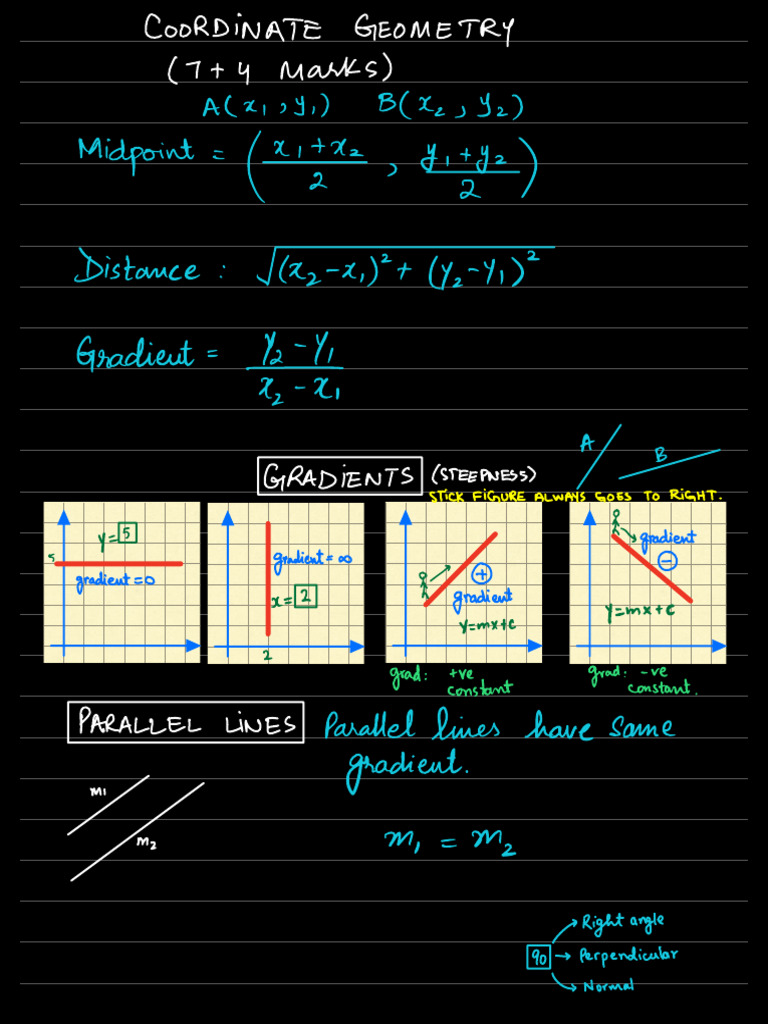 COORDINATE GEOMETRY
(7+4 Marks)
A(x₁, y₁) B(x₂, y₂)
Midpoint = ( x₁+x₂ / 2 , y₁+y₂ / 2 )
Distance : √(x₂-x₁)² + (y₂-y₁)²
Gradient = y₂-y₁ / x₂-x₁
A B
GRADIENTS (STEEPNESS)
STICK FIGURE ALWAYS GOES TO RIGHT.
y=5
5
gradient=0
gradient=∞
x=2
2
+
gradient
y=mx+c
grad: +ve
constant
gradient
-
y=mx+c
grad: -ve
constant.
PARALLEL LINES Parallel lines have same
gradient.
m₁
m₂
m₁ = m₂
Right angle
90 → Perpendicular
Normal